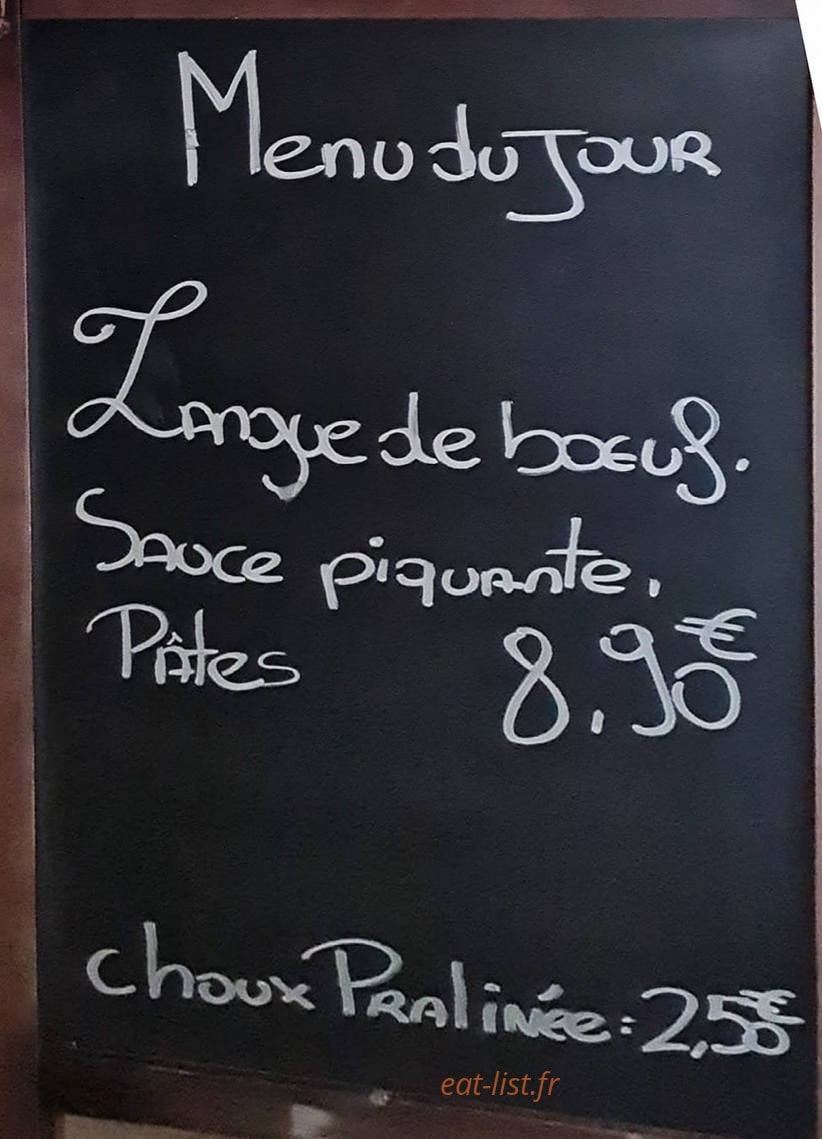 Menu du JOUR
Langue de boeuf.
Sauce piquante,
Pâtes 8,90€
choux Pralinée: 2,50€
eat-list.fr